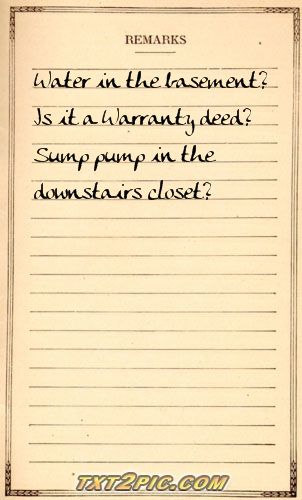 REMARKS
Water in the basement?
Is it a Warranty deed?
Sump pump in the
downstairs closet?
TXT2PIC.COM